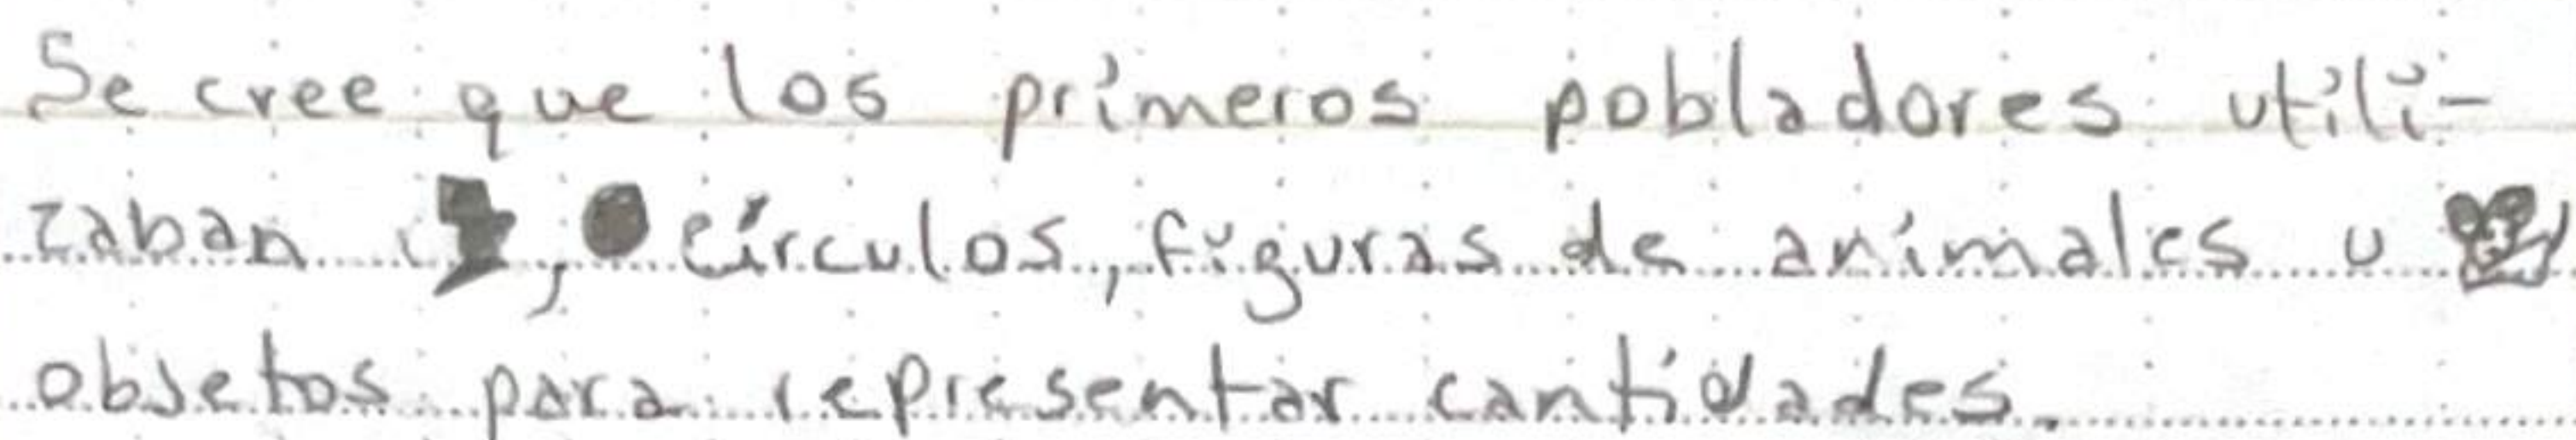 Se cree que los primeros pobladores utili-
zaban , círculos, figuras de animales u
objetos para representar cantidades.